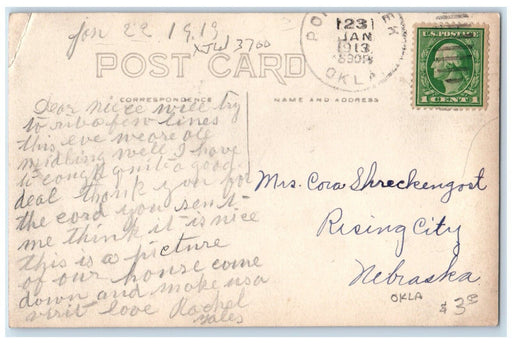 Jan 22 1913
POST CARD
CORRESPONDENCE
NAME AND ADDRESS
23
JAN
1913
830P
OKLA
U.S. POSTAGE
1 CENT 1
Dear niece will try
to rite a few lines
this eve we are all
midling well I have
to cough quite a good
deal thank you for
the card you sent
me think it is nice
this is a picture
of our house come
down and make us a
visit love Rachel
Yales
Mrs. Cora Shreckengost
Rising City
Nebraska
OKLA